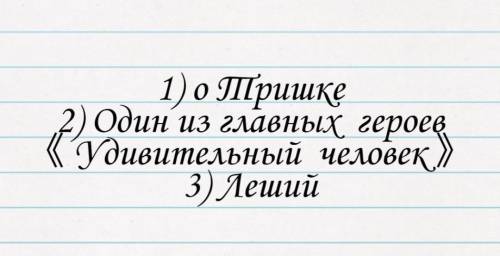 1) о Тришке
2) Один из главных героев
《 Удивительный человек》
3) Леший